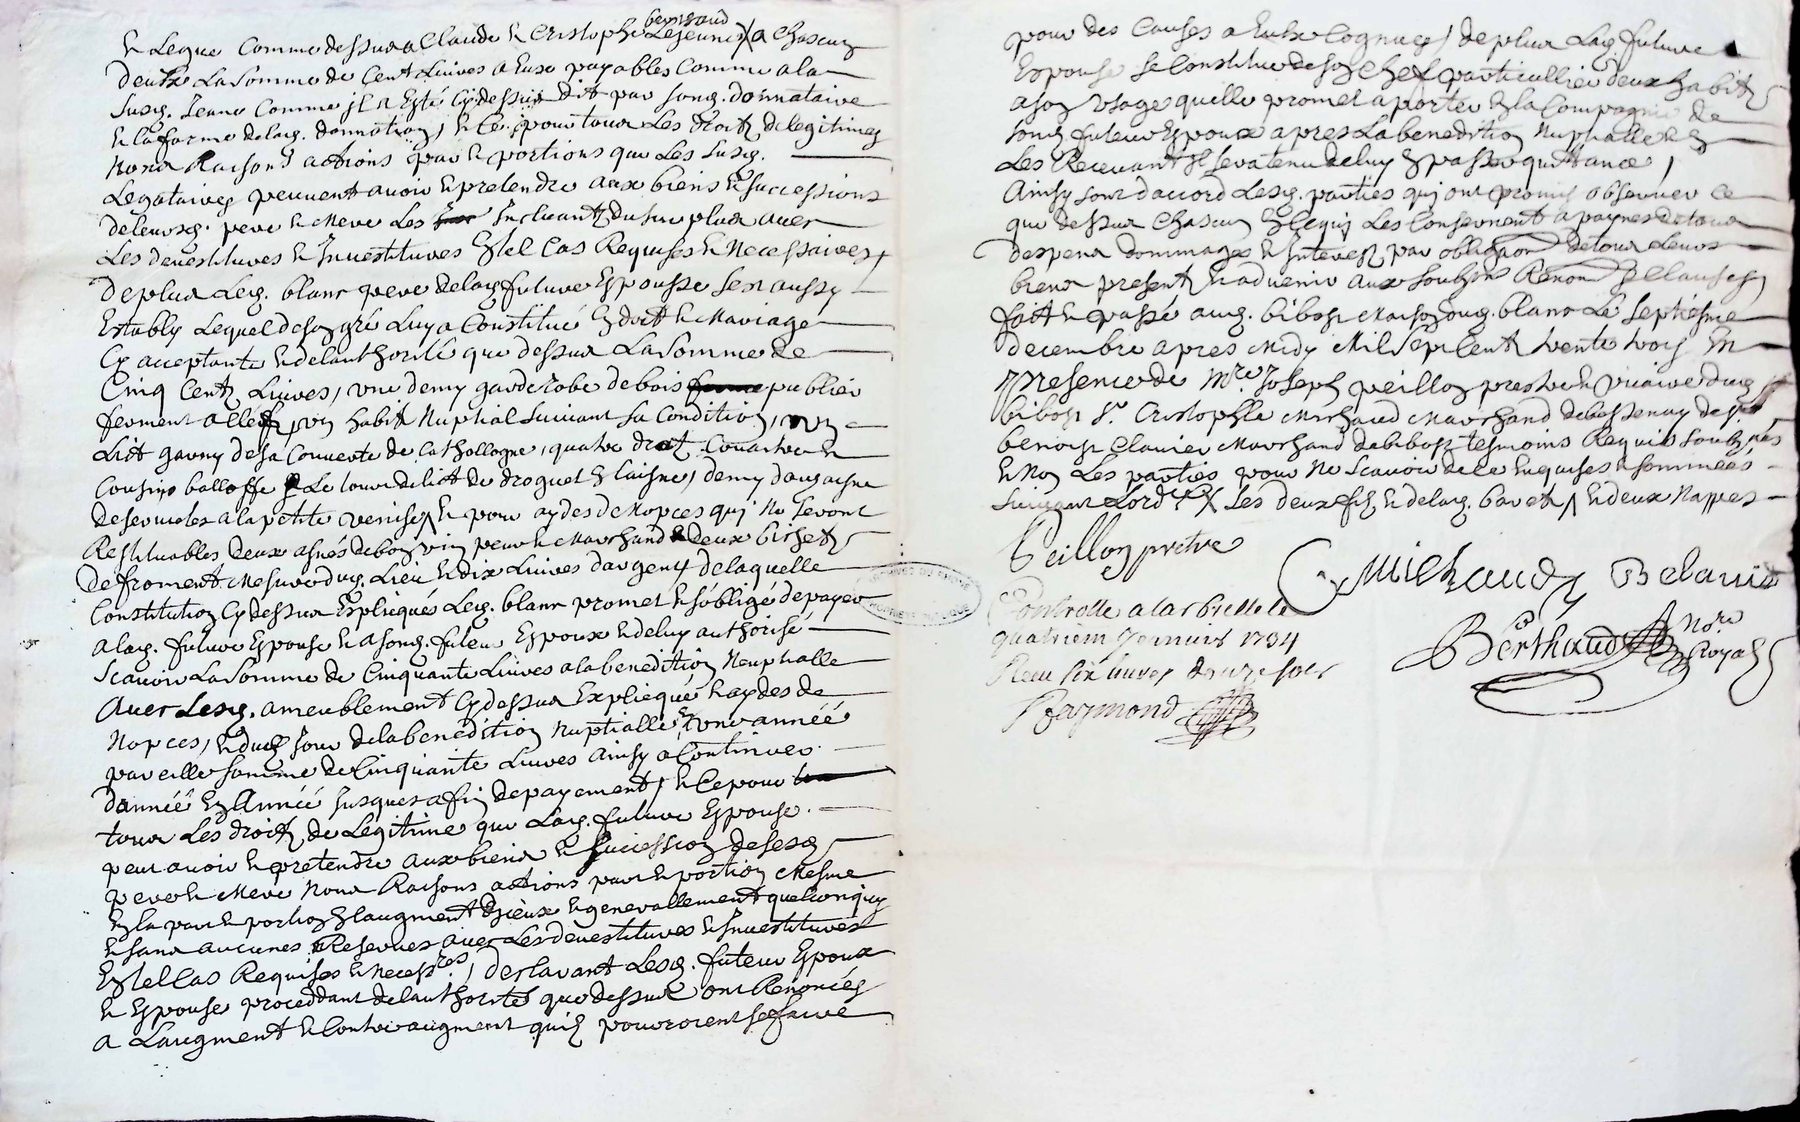 & Legue Comme dessus a Claude & Cristophe Lejeune X a Chascun
benisaud
deulx La Somme de Cent Livres a Eux payables Comme a la
susd. Jeane Comme jl a Esté Cydessus dit par sond. donnataire
& la forme de lad. donnation, & Ce pour tous Les droits de legitimes
Noms Raisons actions part & portions que Les susd.
Legataires peuvent avoir & pretendre aux biens & successions
de leursd. pere & Mere Les Incluants du surplus avec
Les devestitures & Investitures En tel Cas Requises & Necessaires,
de plus Led. blanc pere de lad. future Espousse sest aussy
Establi Lequel de son gré Luy a Constitué En dot & Mariage
Cy acceptante & de lauthorité que dessus La Somme de
Cinq Cents Livres, une demy garderobe de bois publier
ferment a clef, un habit Nuptial suivant sa Condition, un
Lict garny de sa Couverte de Cathollogne, quatre draps, Couatre &
Cousins balloffe Le tour de lict de droguet En laisne, demy dousaine
de serviettes a la petite Venise, & pour aydes de Nopces qui Ne seront
Restituables deux asnés de bon vin pur & Marchand & deux bichets
de froment Mesure dud. Lieu & dix Livres dargent de laquelle
Constitution Cydessus Expliquée Led. blanc promet & sobligé de payer
a lad. future Espouse & a sond. futeur Espoux & de luy authorisé
scavoir La Somme de Cinquante Livres a la benedition Neuptialle
avec Lesd. ameublement Cydessus Expliequé & aydes de
Nopces, & dud. jour de la benedition Nuptialle En une année
pareille somme de Cinquante Livres Ainsy a Continuer
dannéé En Annéé jusques a fin de payement, & Ce pour
tous Les droits de Legitime que Lad. future Espouse
peut avoir & pretendre aux biens & successions de sesd.
pere & Mere Noms Raisons actions part & portion Mesme
En la part & portion En laugment & generallement quelconque
& sans aucunes Reserves avec Les devestitures & Investitures
En tel Cas Requises & Necessres, declarant Lesd. futeur Espoux
& Espouse proceddant de lauthorité que dessus ont Renoncés
a Laugment & Contreaugment quils pouroient se faire
pour des Causes a Eulx Cognues, de plus Lad. future
Espouse se Constitue de son Chef particullier deux habits
a son Usage quelle promet aporter En la Compagnie de
sond. futeur Espoux apres La benedition Nuptialle & En
Les Recevant jl sera tenu de luy En passer quittance,
Ainsy sont daccord Lesd. parties qui ont promis observer Ce
que dessus Chascun En Ce qui Les Consernent a paynes de tous
despens dommages & Interets, par obligaon de tous Leurs
biens presents & advenir aux soubson Renoon & Clauses,
fait & passé aud. bibost Maison dud. blanc Le septiesme
decembre apres Midy Mil sept Cents trente trois En
presence de Mre Joseph peillon prestre & vicaire dud.
bibost Sr Cristophle Michaud Marchand de Bessenay & Sr
benoist Clavier Marchand de bibost tesmoins Requis soubsnés
& Non Les parties pour Ne scavoir de Ce Enquises & sommeés
suivant Lordce X Les deux fils & de lad. bavet / & deux Nappes
Peillon pretre
CMichaud BClavier
Controllé a larbresle le
quatriem Janvier 1734
Receu six livres douze sols
Raymond
Berthaud Nore Royal